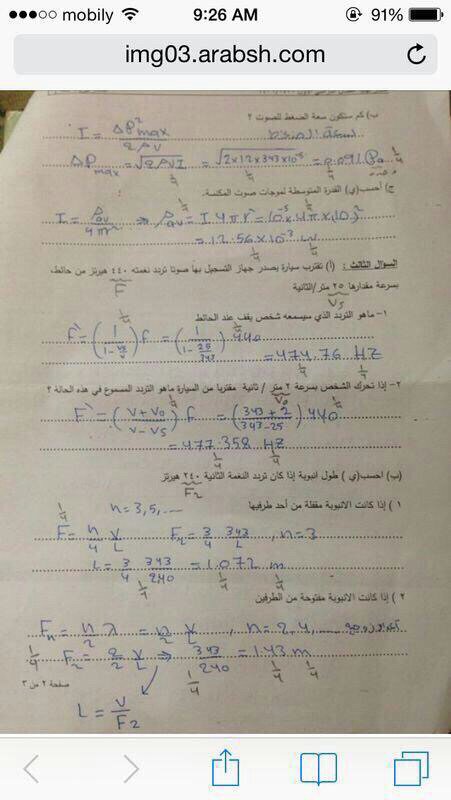 mobily 9:26 AM 91%
img03.arabsh.com
ب) كم ستكون سعة الضغط للصوت ؟
I = ΔP²max / 2ρv
ΔPmax = √2ρvI = √2×1.2×343×10⁻⁵ = 0.091 Pa 1/4
1/4 1/4 1/4
ج) أحسب(ي) القدرة المتوسطة لموجات صوت المكنسة.
I = Pav / 4πr² ⇒ Pav = I 4πr² = 10⁻⁵ × 4π × (10)²
= 12.56×10⁻³ w
1/4 1/4
السؤال الثالث : (أ) تقترب سيارة يصدر جهاز التسجيل بها صوتا تردد نغمته ٤٤٠ هيرتز من حائط،
F
بسرعة مقدارها ٢٥ متر/الثانية
Vs
١- ماهو التردد الذي سيسمعه شخص يقف عند الحائط
F` = (1 / 1 - vs/v) f = (1 / 1 - 25/343) 440
= 474.76 HZ
1/4 1/4
٢- إذا تحرك الشخص بسرعة ٢ متر / ثانية مقتربا من السيارة ماهو التردد المسموع في هذه الحالة ؟
Vo
F` = (V + Vo / V - Vs) f = (343 + 2 / 343 - 25) 440
= 477.358 HZ
1/4 1/4
(ب) احسب(ي ) طول انبوبة إذا كان تردد النغمة الثانية ٢٤٠ هيرتز
F2
١ ) إذا كانت الانبوبة مقفلة من أحد طرفيها
1/4 n = 3, 5, ....
F = n/4 V/L F2 = 3/4 343/L , n = 3
L = 3/4 343/240 = 1.072 m
1/4 1/4 1/4
٢ ) إذا كانت الانبوبة مفتوحة من الطرفين
Fn = n/2 λ = n/2 V/L , n = 2, 4, ....
1/4 F2 = 2/2 V/L ⇒ 343/240 = 1.43 m
1/4 1/4 1/4
صفحة ٢ من ٣
L = V / F2